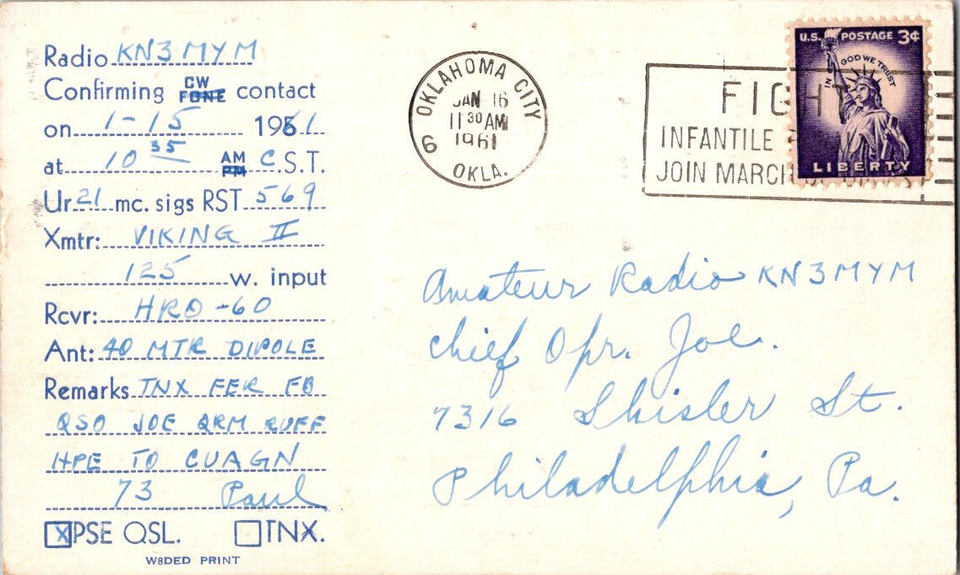 Radio KN3MYM
Confirming CW FONE contact
on 1-15 1961
at 10 35 AM PM C.S.T.
Ur 21 mc. sigs RST 569
Xmtr: VIKING II
125 w. input
Rcvr: HRO-60
Ant: 40 MTR DIPOLE
Remarks TNX FER FB
QSO JOE QRM RUFF
HPE TO CUAGN
73 Paul
X PSE QSL. TNX.
W8DED PRINT
OKLAHOMA CITY
JAN 16
11 30 AM
1961
OKLA.
6
FIGHT
INFANTILE
JOIN MARCH
U.S. POSTAGE 3¢
IN GOD WE TRUST
LIBERTY
Amateur Radio KN3MYM
Chief Opr. Joe.
7316 Shisler St.
Philadelphia, Pa.